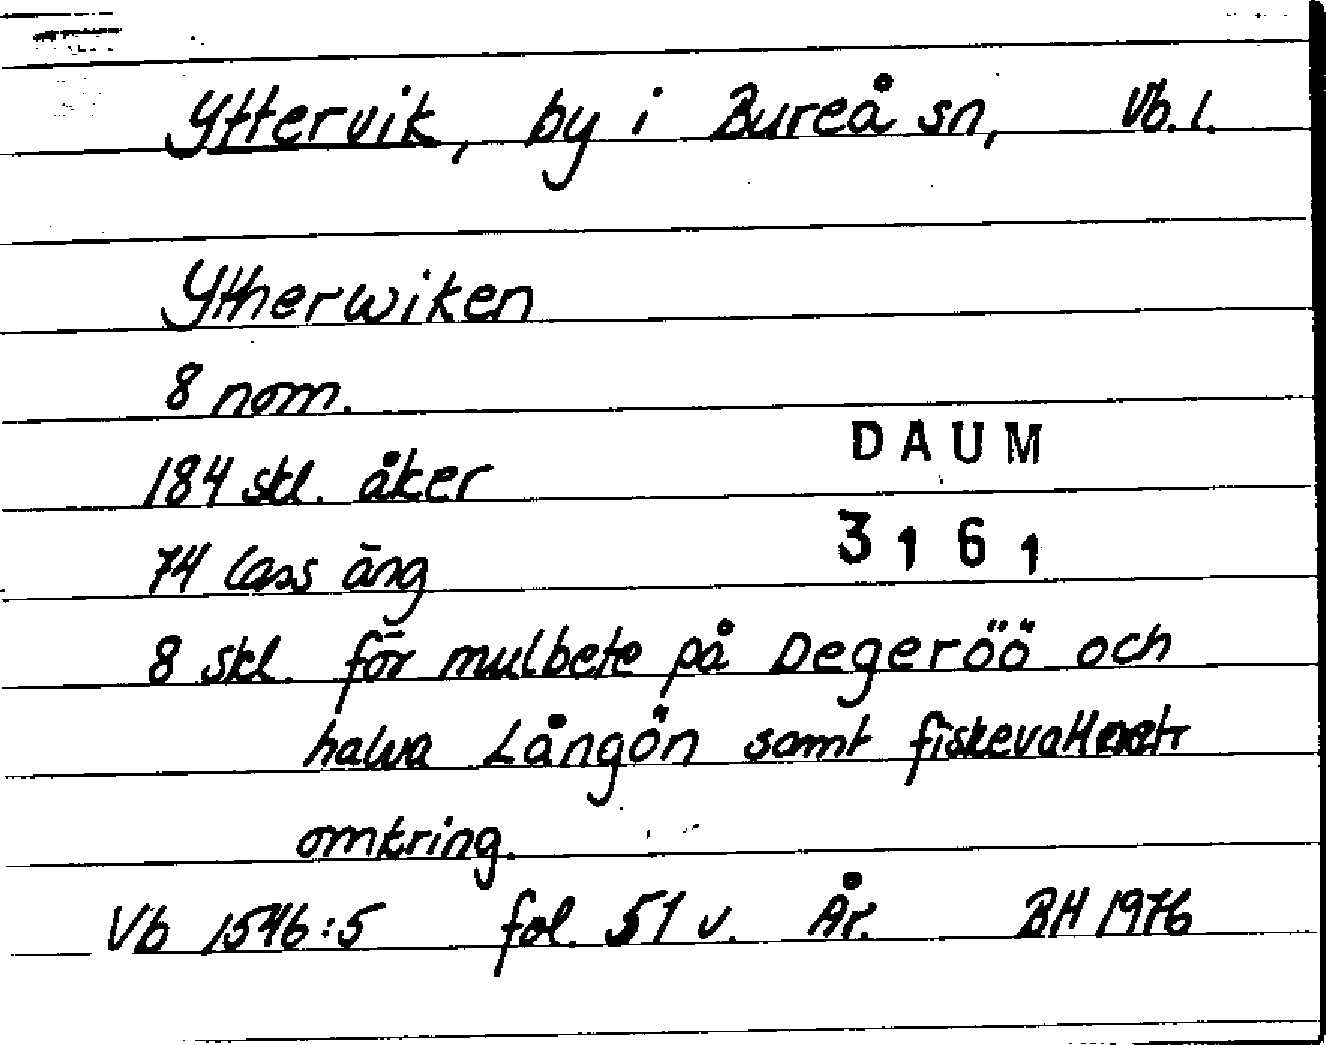 Yttervik, by i Bureå sn, Vb. l.
Ytherwiken
8 nom.
184 skl. åker
DAUM
74 lass äng
3161
8 skl. för mulbete på Degeröö och
halva Långön samt
omkring.
Vb 1546:5 fol. 51 v. År. BH 1976